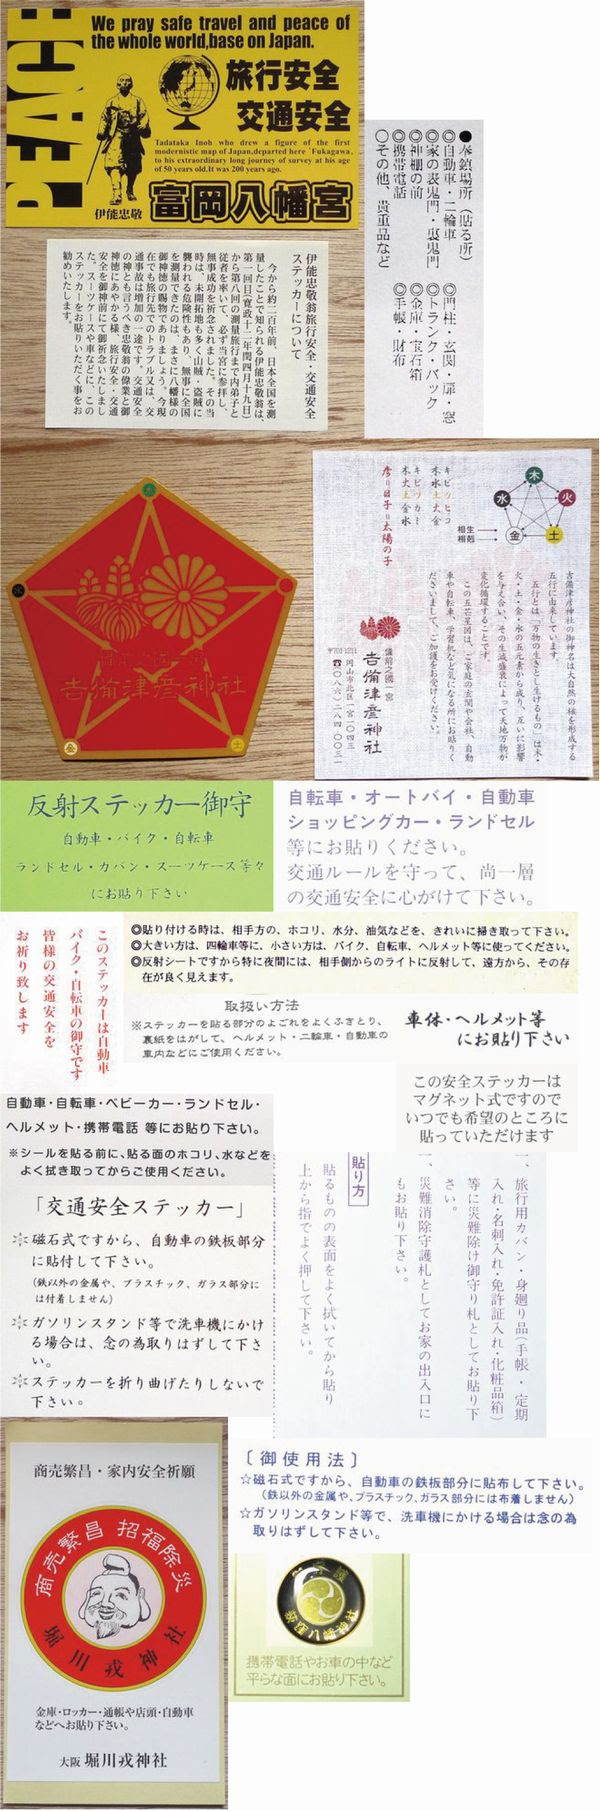 PEACE
We pray safe travel and peace of
the whole world,base on Japan.
旅行安全
交通安全
Tadataka Inoh who drew a figure of the first
modernistic map of Japan,departed here「Fukagawa,
to his extraordinary long journey of survey at his age
of 50 years old.It was 200 years ago.
伊能忠敬
富岡八幡宮
●奉鎮場所（貼る所）
◎自動車・二輪車
◎家の表鬼門・裏鬼門
◎神棚の前
◎携帯電話
○その他、貴重品など
◎門柱・玄関・扉・窓
◎トランク・バック
◎金庫・宝石箱
◎手帳・財布
伊能忠敬翁旅行安全・交通安全
ステッカーについて
今から約二百年前、日本全国を測
量したことで知られる伊能忠敬翁は、
第一回目（寛政十二年閏四月十九日）
から第八回の測量旅行まで内弟子と
従者を率いて、必ず当宮に参拝し、
無事成功を祈念されました。その当
時は、未開拓地も多く山賊・盗賊に
襲われる危険性もあり、無事に全国
を測量できたのは、まさに八幡様の
御神徳の賜物でありましょう。今現
在でも旅行先でのトラブル又は、交
通事故は増加の一途です。交通安全
の神とも言うべき忠敬翁の偉業と御
神徳にあやかる様、旅行安全・交通
安全を御神前にて御祈念いたしまし
た。スーツケースや車などに、この
ステッカーをお貼りいただく事をお
勧めいたします。
木
火
土
金
水
備前の国一宮
吉備津彦神社
木
火
土
金
水
相生
相剋
キビツヒコ
木水土火金
キビツカミ
木火土金水
彦＝日子＝太陽の子
吉備津彦神社の御神名は大自然の様を形成する
五行に由来しています。
五行とは、「万物の生きとし生けるもの」は木・
火・土・金・水の五元素から成り、互いに影響
を与え合い、その生滅盛衰によって天地万物が
変化循環することです。
この五芒星図は、ご家庭の玄関や会社、自動
車や自転車、学習机など気になる所にお貼りく
ださいまして、ご加護をお受けください。
備前之國一宮
吉備津彦神社
〒701-1211
岡山市北区一宮一〇四三
☎（〇八六）二八四-〇〇三一
反射ステッカー御守
自動車・バイク・自転車
ランドセル・カバン・スーツケース等々
にお貼り下さい
自転車・オートバイ・自動車
ショッピングカー・ランドセル
等にお貼りください。
交通ルールを守って、尚一層
の交通安全に心がけて下さい。
このステッカーは自動車
バイク・自転車の御守です
皆様の交通安全を
お祈り致します
◎貼り付ける時は、相手方の、ホコリ、水分、油気などを、きれいに掃き取って下さい。
◎大きい方は、四輪車等に、小さい方は、バイク、自転車、ヘルメット等に使ってください。
◎反射シートですから特に夜間には、相手側からのライトに反射して、遠方から、その存
在が良く見えます。
取扱い方法
※ステッカーを貼る部分のよごれをよくふきとり、
裏紙をはがして、ヘルメット・二輪車・自動車の
車内などにご使用ください。
車体・ヘルメット等
にお貼り下さい
この安全ステッカーは
マグネット式ですので
いつでも希望のところに
貼っていただけます
自動車・自転車・ベビーカー・ランドセル・
ヘルメット・携帯電話 等にお貼り下さい。
※シールを貼る前に、貼る面のホコリ、水などを
よく拭き取ってからご使用ください。
「交通安全ステッカー」
磁石式ですから、自動車の鉄板部分
に貼付して下さい。
（鉄以外の金属や、プラスチック、ガラス部分に
は付着しません）
ガソリンスタンド等で洗車機にかけ
る場合は、念の為取りはずして下さ
い。
ステッカーを折り曲げたりしないで
下さい。
一、旅行用カバン・身廻り品（手帳・定期
入れ・名刺入れ・免許証入れ・化粧品箱）
等に災難除け御守り札としてお貼り下
さい。
一、災難消除守護札としてお家の出入口に
もお貼り下さい。
貼り方
貼るものの表面をよく拭いてから貼り
上から指でよく押して下さい。
商売繁昌・家内安全祈願
商売繁昌 招福除災
堀川戎神社
金庫・ロッカー・通帳や店頭・自動車
などへお貼り下さい。
大阪 堀川戎神社
〔御使用法〕
☆磁石式ですから、自動車の鉄板部分に貼布して下さい。
（鉄以外の金属や、プラスチック、ガラス部分には布着しません）
☆ガソリンスタンド等で、洗車機にかける場合は念の為
取りはずして下さい。
荻窪八幡神社
携帯電話やお車の中など
平らな面にお貼り下さい。